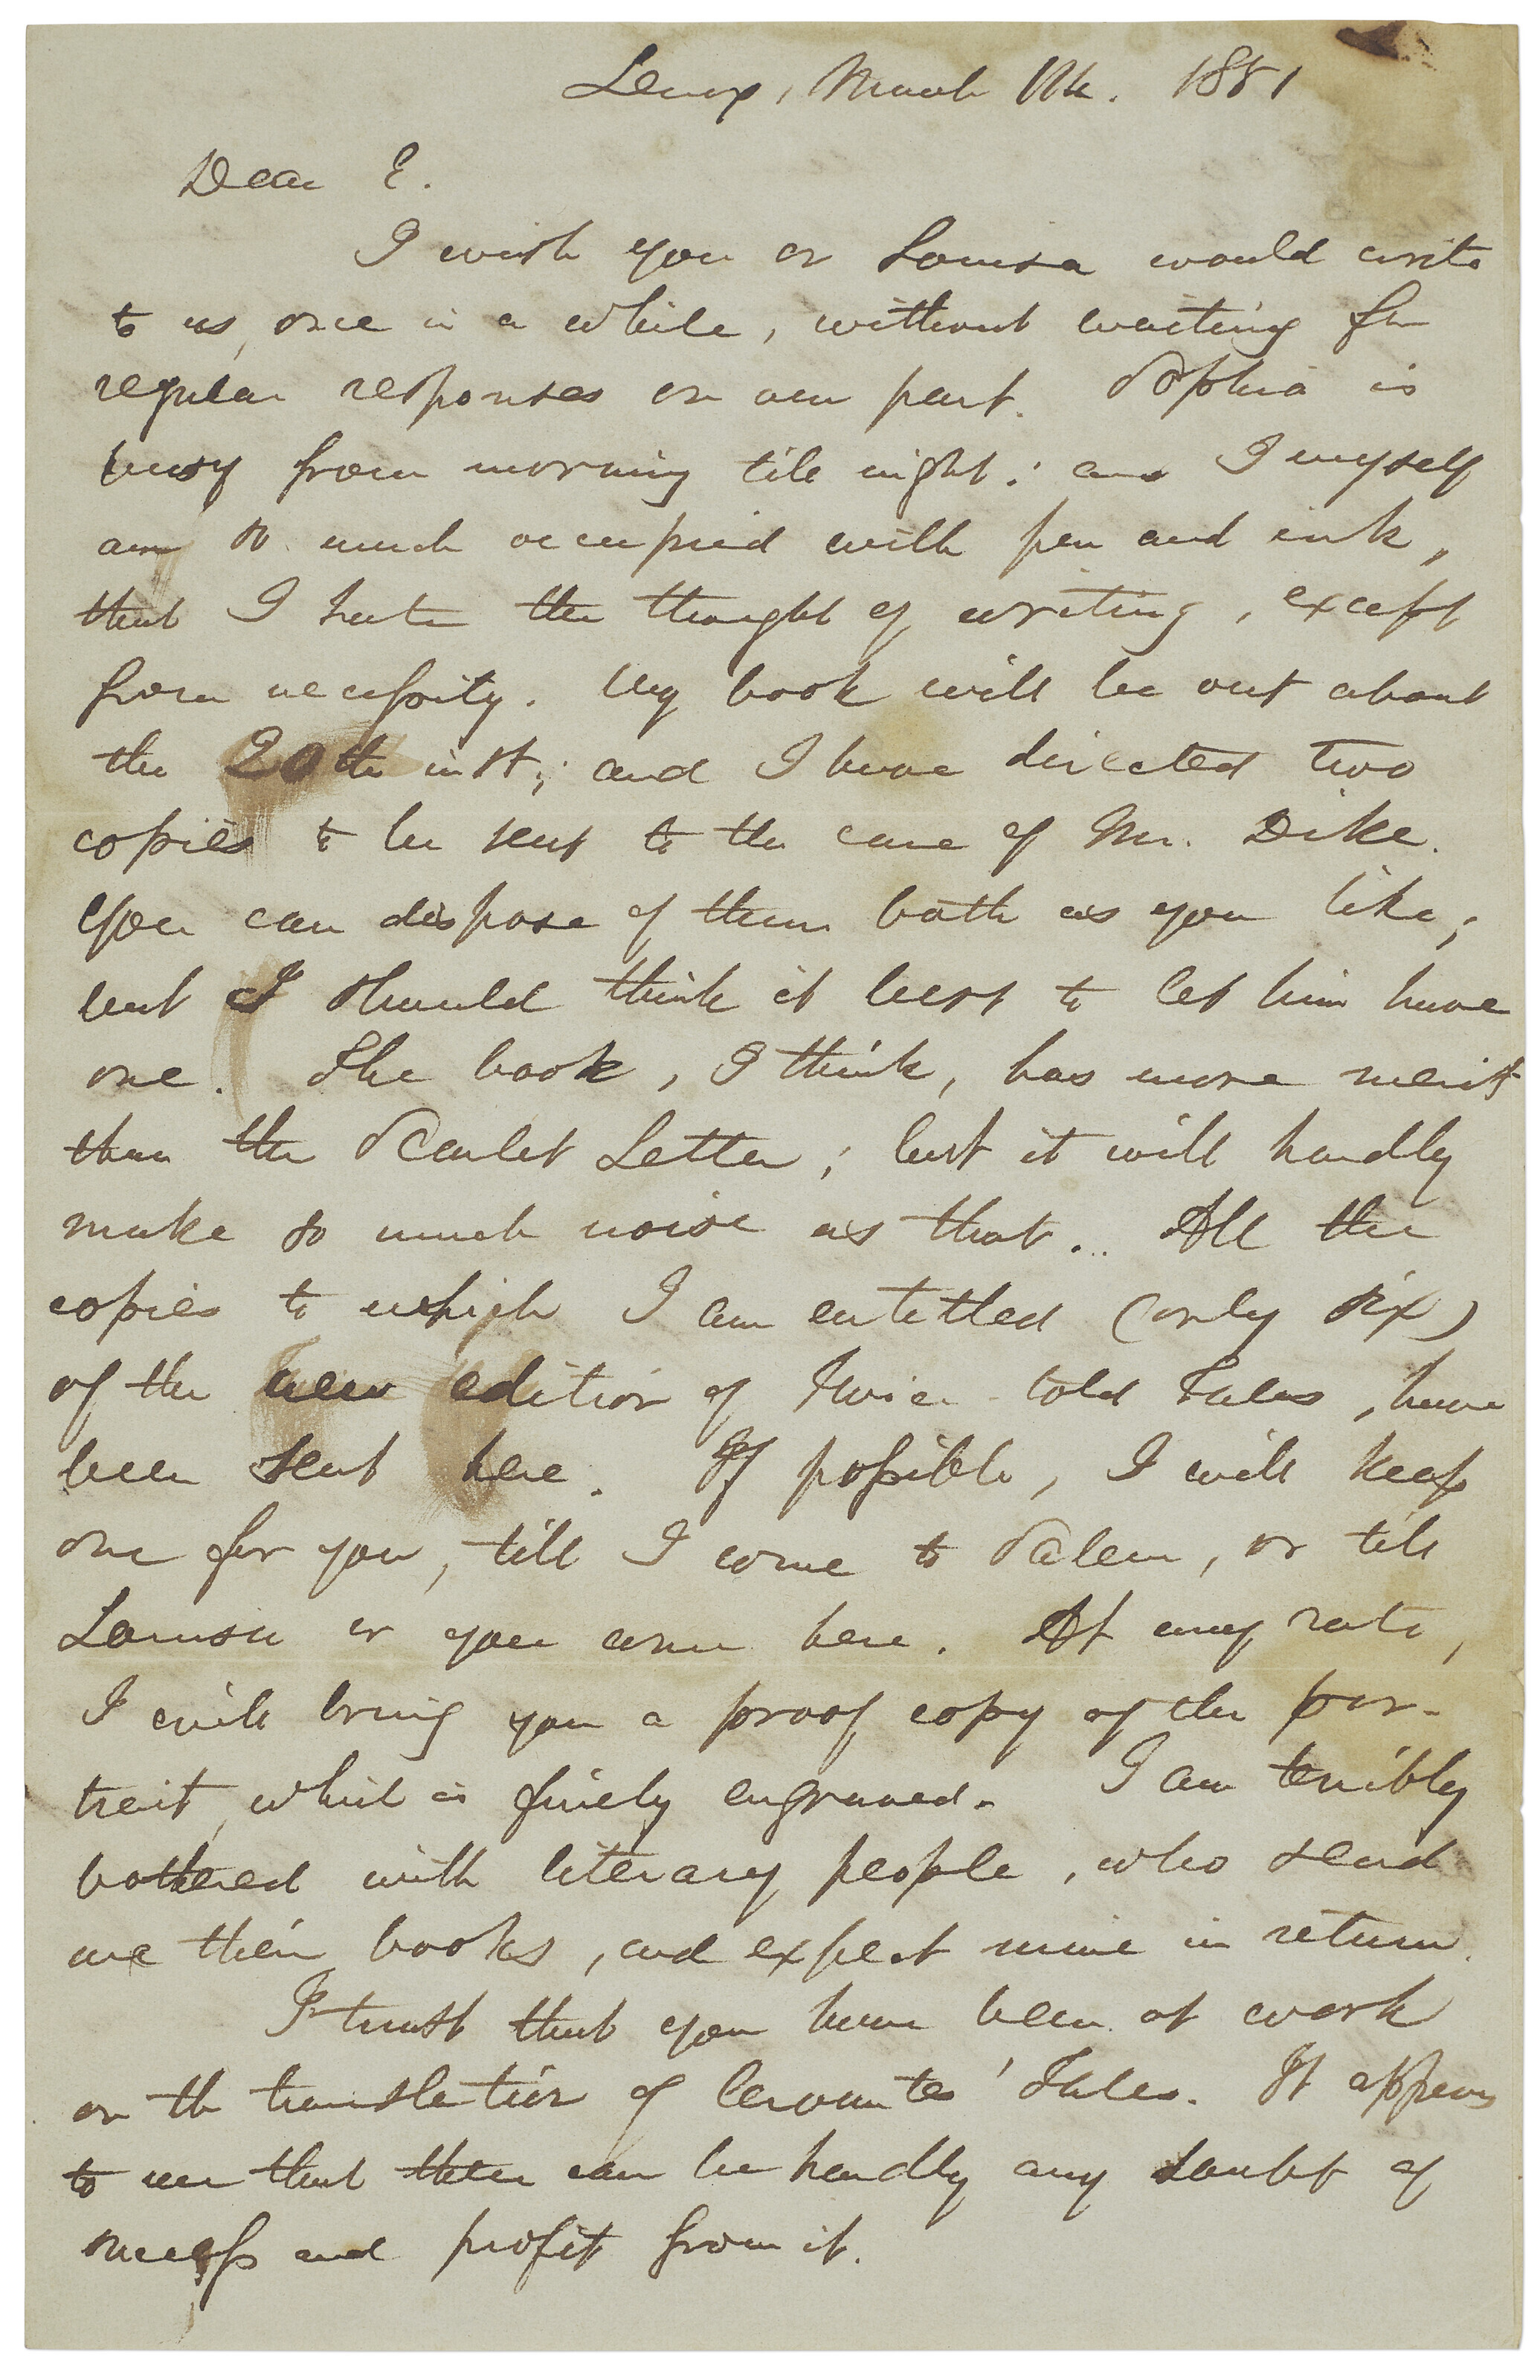 Lenox, March 11th. 1851
Dear E.
I wish you or Louisa would write
to us, once in a while, without waiting for
regular responses on our part. Sophia is
busy from morning till night; and I myself
am so much occupied with pen and ink,
that I hate the thought of writing, except
from necessity. My book will be out about
the 20th inst; and I have directed two
copies to be sent to the care of Mr. Dike.
You can dispose of them both as you like;
but I should think it best to let him have
one. The book, I think, has more merit
than the Scarlet Letter; but it will hardly
make so much noise as that. All the
copies to which I am entitled (only six)
of the new edition of Twice-told Tales, have
been sent here. If possible, I will keep
one for you, till I come to Salem, or till
Louisa or you come here. At any rate,
I will bring you a proof copy of the por-
trait, which is finely engraved. I am terribly
bothered with literary people, who send
me their books, and expect mine in return.
I trust that you have been at work
on the translation of Cervantes' Tales. It appears
to me that there can be hardly any doubt of
success and profit from it.